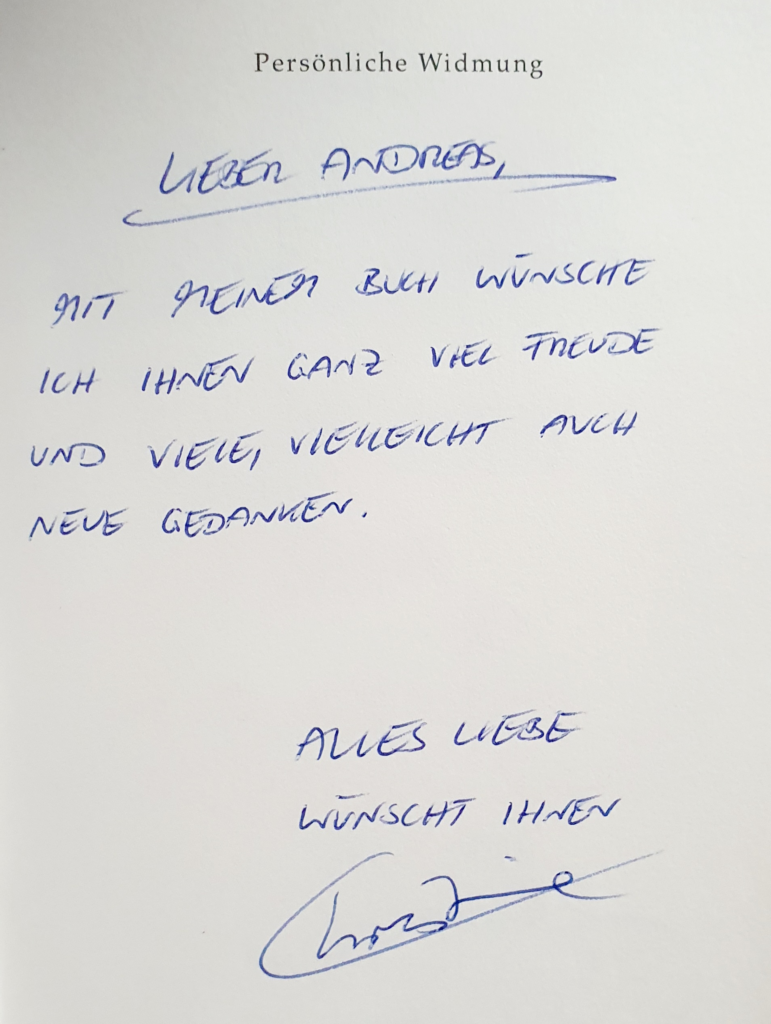 Persönliche Widmung
LIEBER ANDREAS,
MIT MEINEM BUCH WÜNSCHE
ICH IHNEN GANZ VIEL FREUDE
UND VIELE, VIELLEICHT AUCH
NEUE GEDANKEN.
ALLES LIEBE
WÜNSCHT IHNEN